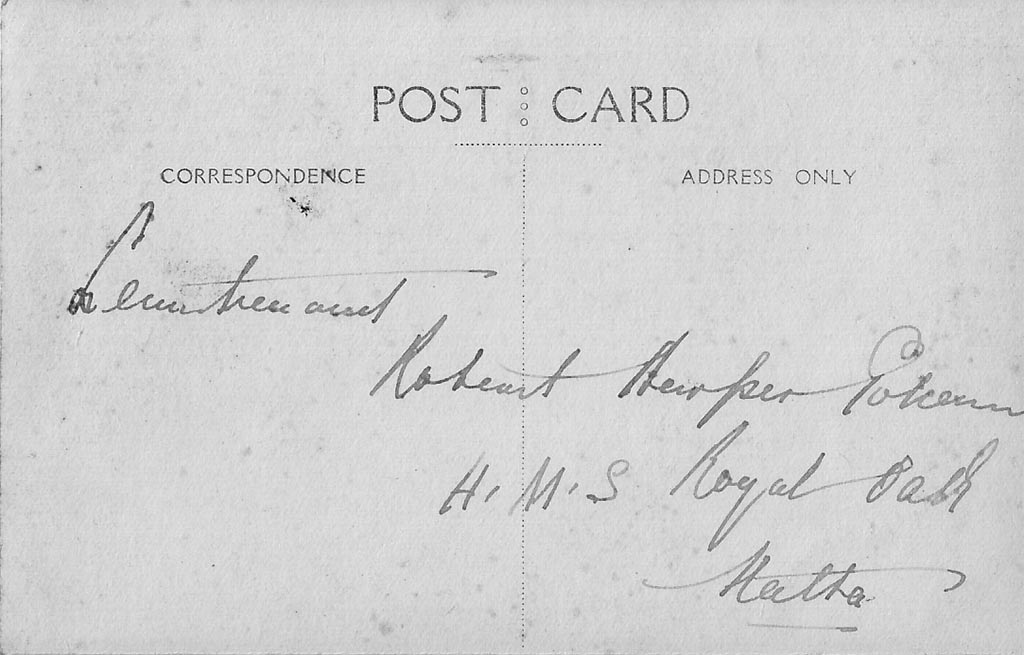 POST CARD
CORRESPONDENCE ADDRESS ONLY
Lieuitenant
Robert
H. M. S Royal Oak
Malta